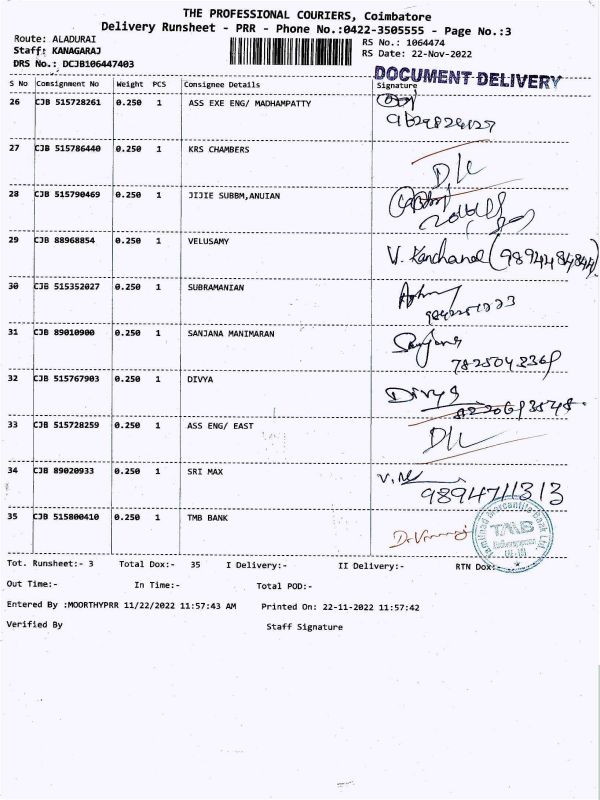 THE PROFESSIONAL COURIERS, Coimbatore
Delivery Runsheet - PRR - Phone No.:0422-3505555 - Page No.:3
Route: ALADURAI
RS No.: 1064474
Staff: KANAGARAJ
RS Date: 22-Nov-2022
DRS No.: DCJB106447403
DOCUMENT DELIVERY
S No Consignment No Weight PCS Consignee Details Signature
26 CJB 515728261 0.250 1 ASS EXE ENG/ MADHAMPATTY
27 CJB 515786440 0.250 1 KRS CHAMBERS
D/L
28 CJB 515790469 0.250 1 JIJIE SUBBM,ANUIAN
29 CJB 88968854 0.250 1 VELUSAMY
V. Kanchana (9894484844)
30 CJB 515352027 0.250 1 SUBRAMANIAN
31 CJB 89010900 0.250 1 SANJANA MANIMARAN
Sanjana
32 CJB 515767903 0.250 1 DIVYA
Divya
33 CJB 515728259 0.250 1 ASS ENG/ EAST
D/L
34 CJB 89020933 0.250 1 SRI MAX
9894711313
35 CJB 515800410 0.250 1 TMB BANK
Tamilnad Mercantile Bank Ltd.
TMB
Tot. Runsheet:- 3 Total Dox:- 35 I Delivery:- II Delivery:- RTN Dox:-
Out Time:- In Time:- Total POD:-
Entered By :MOORTHYPRR 11/22/2022 11:57:43 AM Printed On: 22-11-2022 11:57:42
Verified By Staff Signature